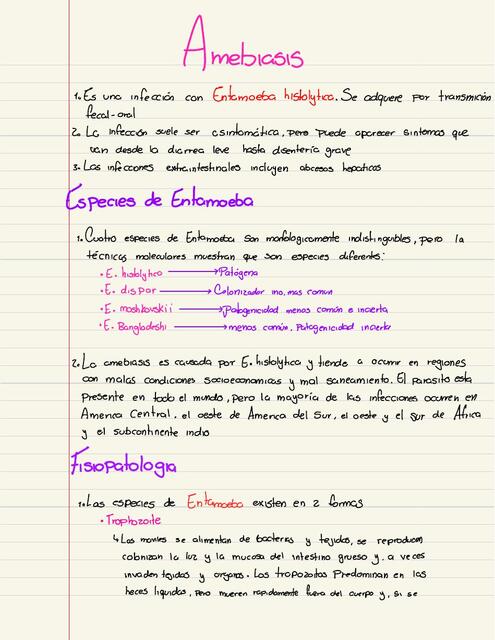 Amebiasis
1. Es una infección con Entamoeba histolytica. Se adquiere por transmisión
fecal-oral
2. La infección suele ser asintomática, pero puede aparecer sintomas que
van desde la diarrea leve hasta disentería grave
3. Las infecciones extraintestinales incluyen abcesos hepaticos
Especies de Entamoeba
1. Cuatro especies de Entamoeba son morfologicamente indistinguibles, pero la
técnicas moleculares muestran que son especies diferentes:
• E. histolytica → Patógena
• E. dispar → Colonizador ino, mas comun
• E. moshkovskii → Patogenicidad menos común e incierta
• E. Bangladeshi → menos común, Patogenicidad incierta
2. La amebiasis es causada por E. histolytica y tiende a ocurrir en regiones
con malas condiciones socioeconomicas y mal saneamiento. El Parasito esta
Presente en todo el mundo, pero la mayoría de las infecciones ocurren en
America Central, el oeste de America del Sur, el oeste y el sur de Africa
y el subcontinente indio
Fisiopatologia
1. Las especies de Entamoeba existen en 2 formas
• Trophozoite
↳ Los moviles se alimentan de bacterias y tejidos, se reproducen
colonizan la luz y la mucosa del intestino grueso y, a veces
invaden tejidos y organos. Los tropozoitos Predominan en las
heces liquidas, pero mueren rapidamente fuera del cuerpo y, si se